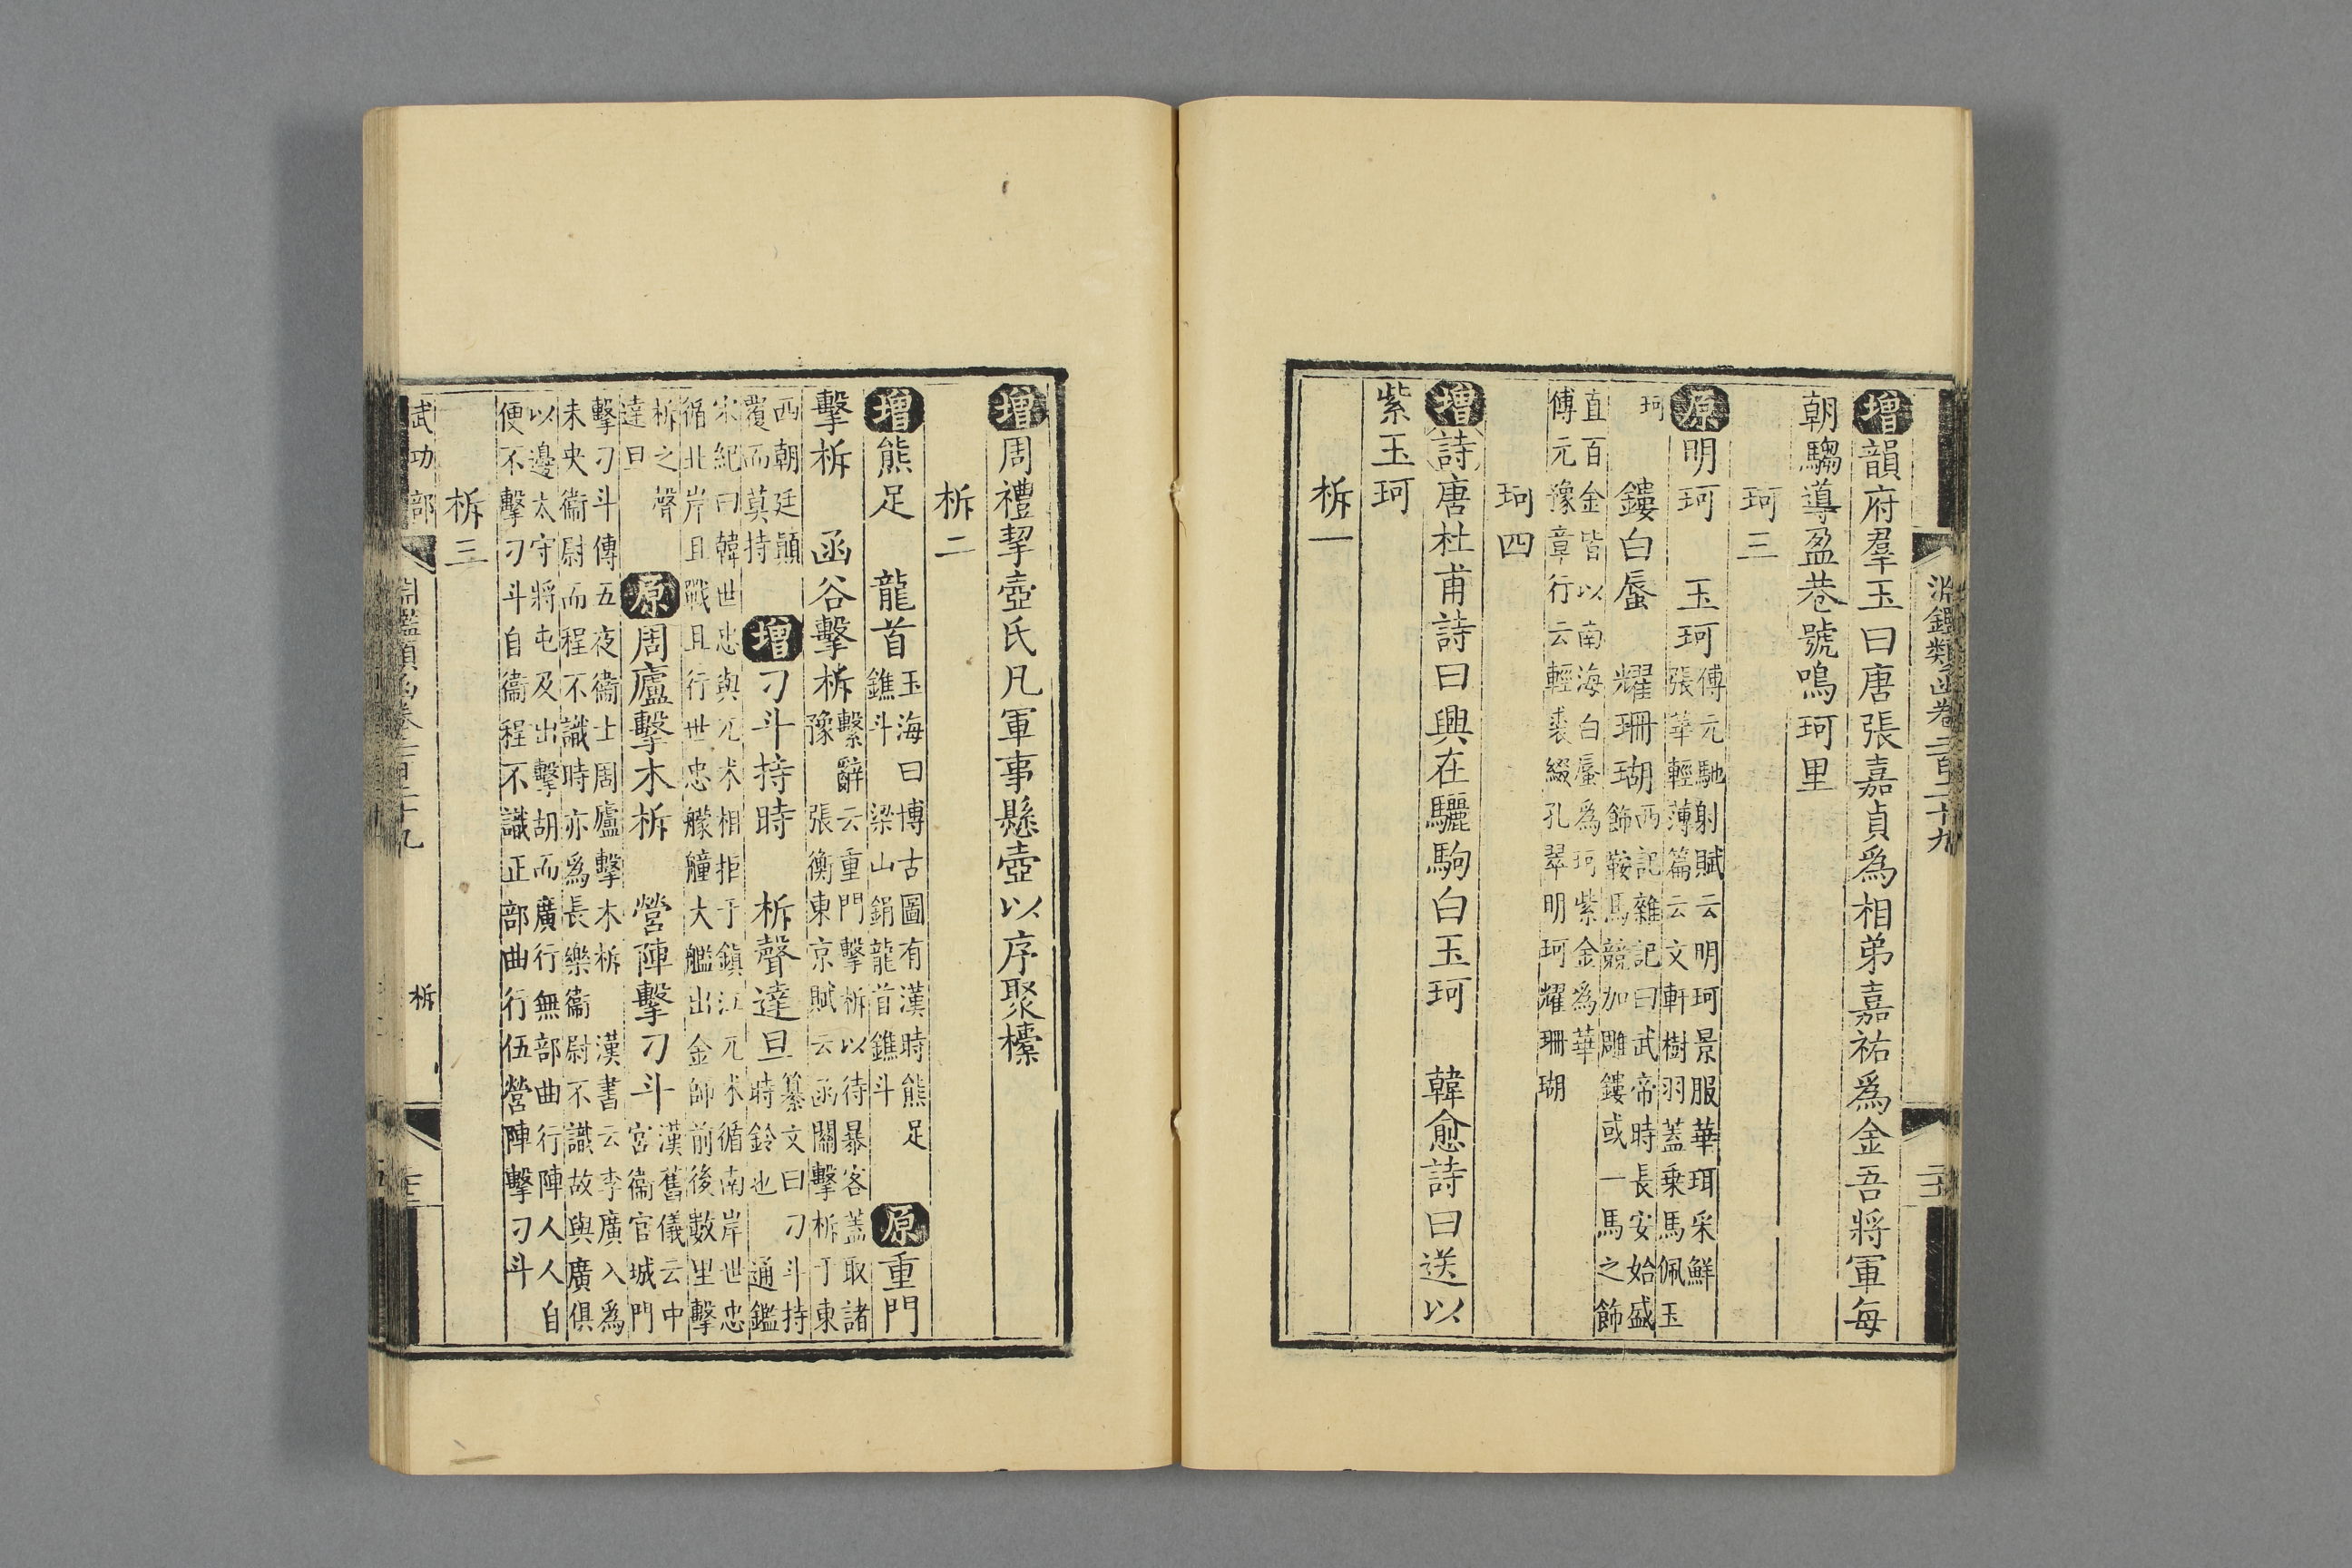 淵鑑類函卷二百二十九
增韻府羣玉曰唐張嘉貞爲相弟嘉祐爲金吾將軍每
朝騶導盈巷號鳴珂里
珂三
原明珂 玉珂傅元馳射賦云明珂景服華珥采鮮
張華輕薄篇云文軒樹羽蓋乗馬佩玉
珂 鏤白蜃 耀珊瑚西記雜記曰武帝時長安始盛
飾鞍馬競加雕鏤或一馬之飾
直百金皆以南海白蜃爲珂紫金爲華
傅元豫章行云輕裘綴孔翠明珂耀珊瑚
珂四
增詩唐杜甫詩曰興在驪駒白玉珂 韓愈詩曰送以
紫玉珂
柝一
增周禮挈壺氏凡軍事懸壺以序聚㯱
柝二
增熊足 龍首玉海曰博古圖有漢時熊足
鐎斗 梁山鋗龍首鐎斗 原重門
擊柝 函谷擊柝繫辭云重門擊柝以待暴客蓋取諸
豫 張衡東京賦云函關擊柝于東
西朝廷顚
覆而莫持 增刁斗持時 柝聲達旦纂文曰刁斗持
時鈴也 通鑑
宋紀曰韓世忠與兀朮相拒于鎮江兀朮循南岸世忠
循北岸且戰且行世忠艨艟大艦出金師前後數里擊
柝之聲
達旦 原周廬擊木柝 營陣擊刁斗漢舊儀云中
宮衞官城門
擊刁斗傳五夜衞士周廬擊木柝 漢書云李廣入爲
未央衞尉而程不識時亦爲長樂衞尉不識故與廣俱
以邊太守將屯及出擊胡而廣行無部曲行陣人人自
便不擊刁斗自衞程不識正部曲行伍營陣擊刁斗
柝三
武功部 淵鑑類函卷二百二十九 柝